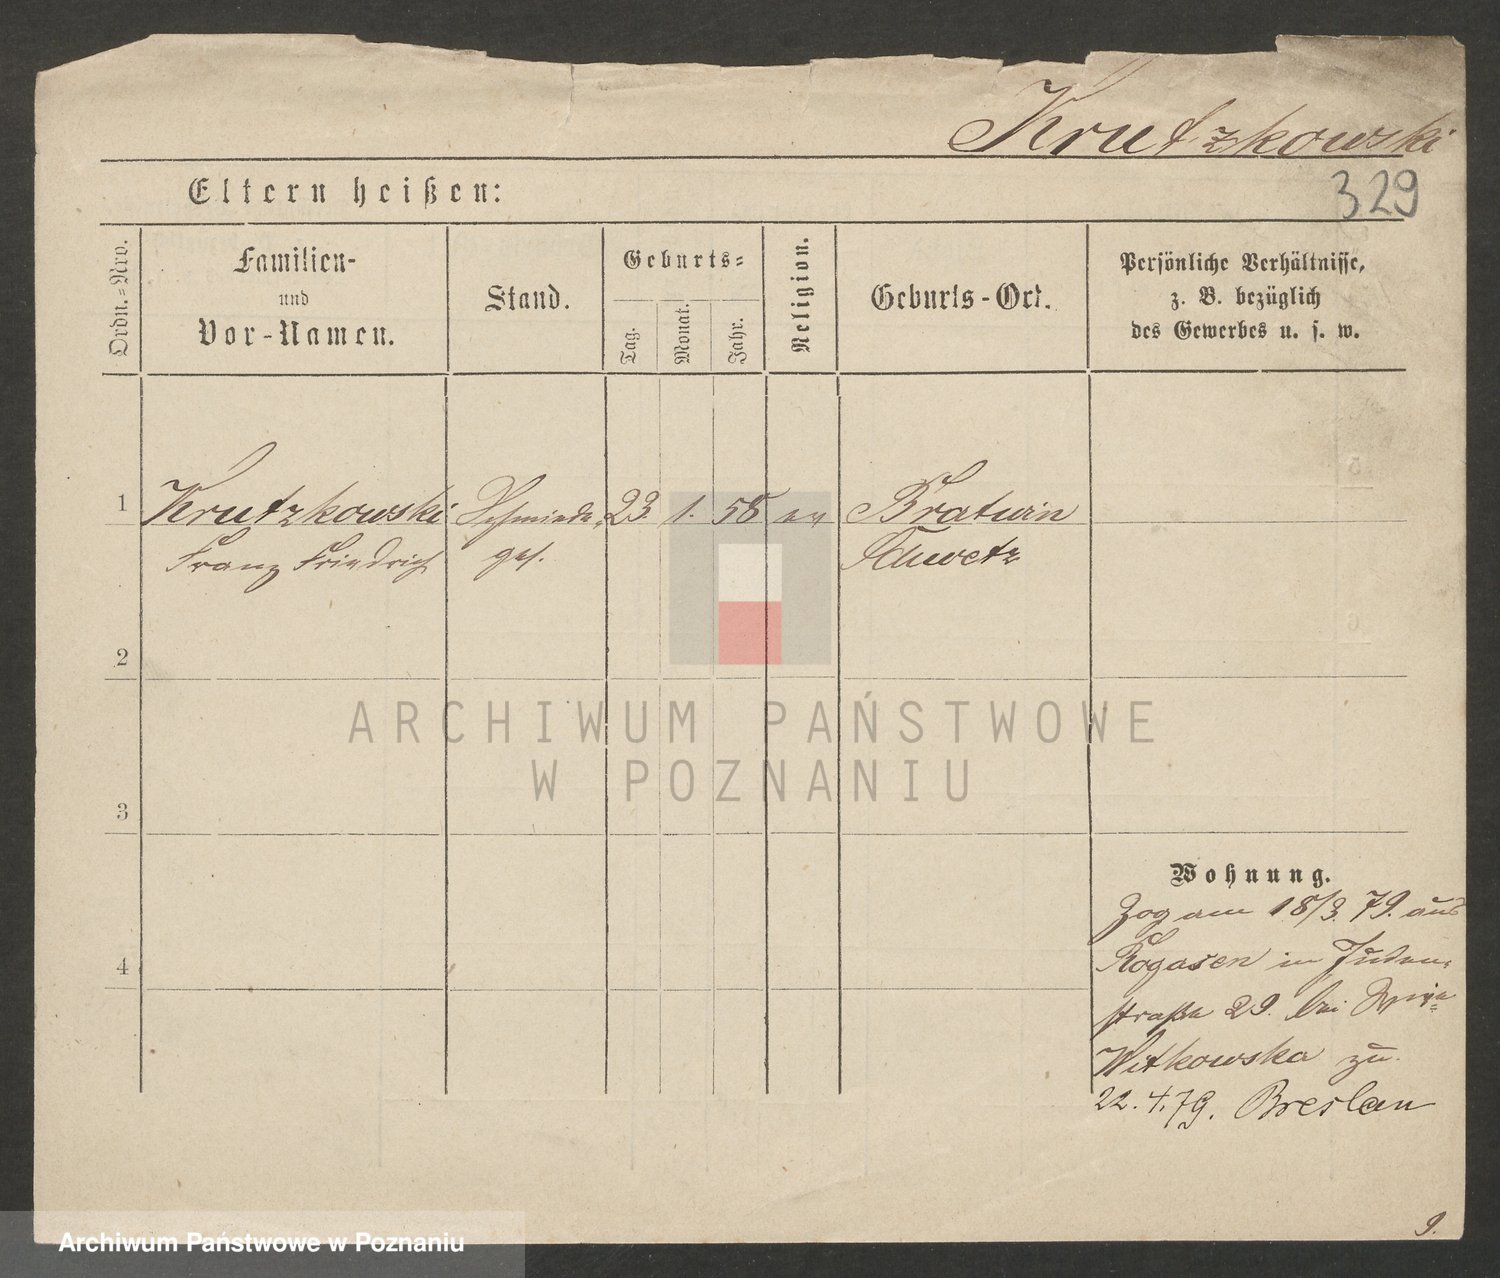 Krutzkowski
329
Eltern heißen:
Ordn.=Nro.
Familien-
und
Vor-Namen.
Stand.
Geburts=
Tag.
Monat.
Jahr.
Religion.
Geburts-Ort.
Persönliche Verhältnisse,
z. B. bezüglich
des Gewerbes u. s. w.
1 Krutzkowski Schmiede= 23. 1. 58 ev Bratwin
Franz Friedrich ges. Schwetz
2
3
4
Wohnung.
Zog am 18/3. 79. aus
Rogasen in Juden=
straße 29. bei
Witkowska zu.
22. 4. 79. Breslau
9.
ARCHIWUM PAŃSTWOWE
W POZNANIU
Archiwum Państwowe w Poznaniu